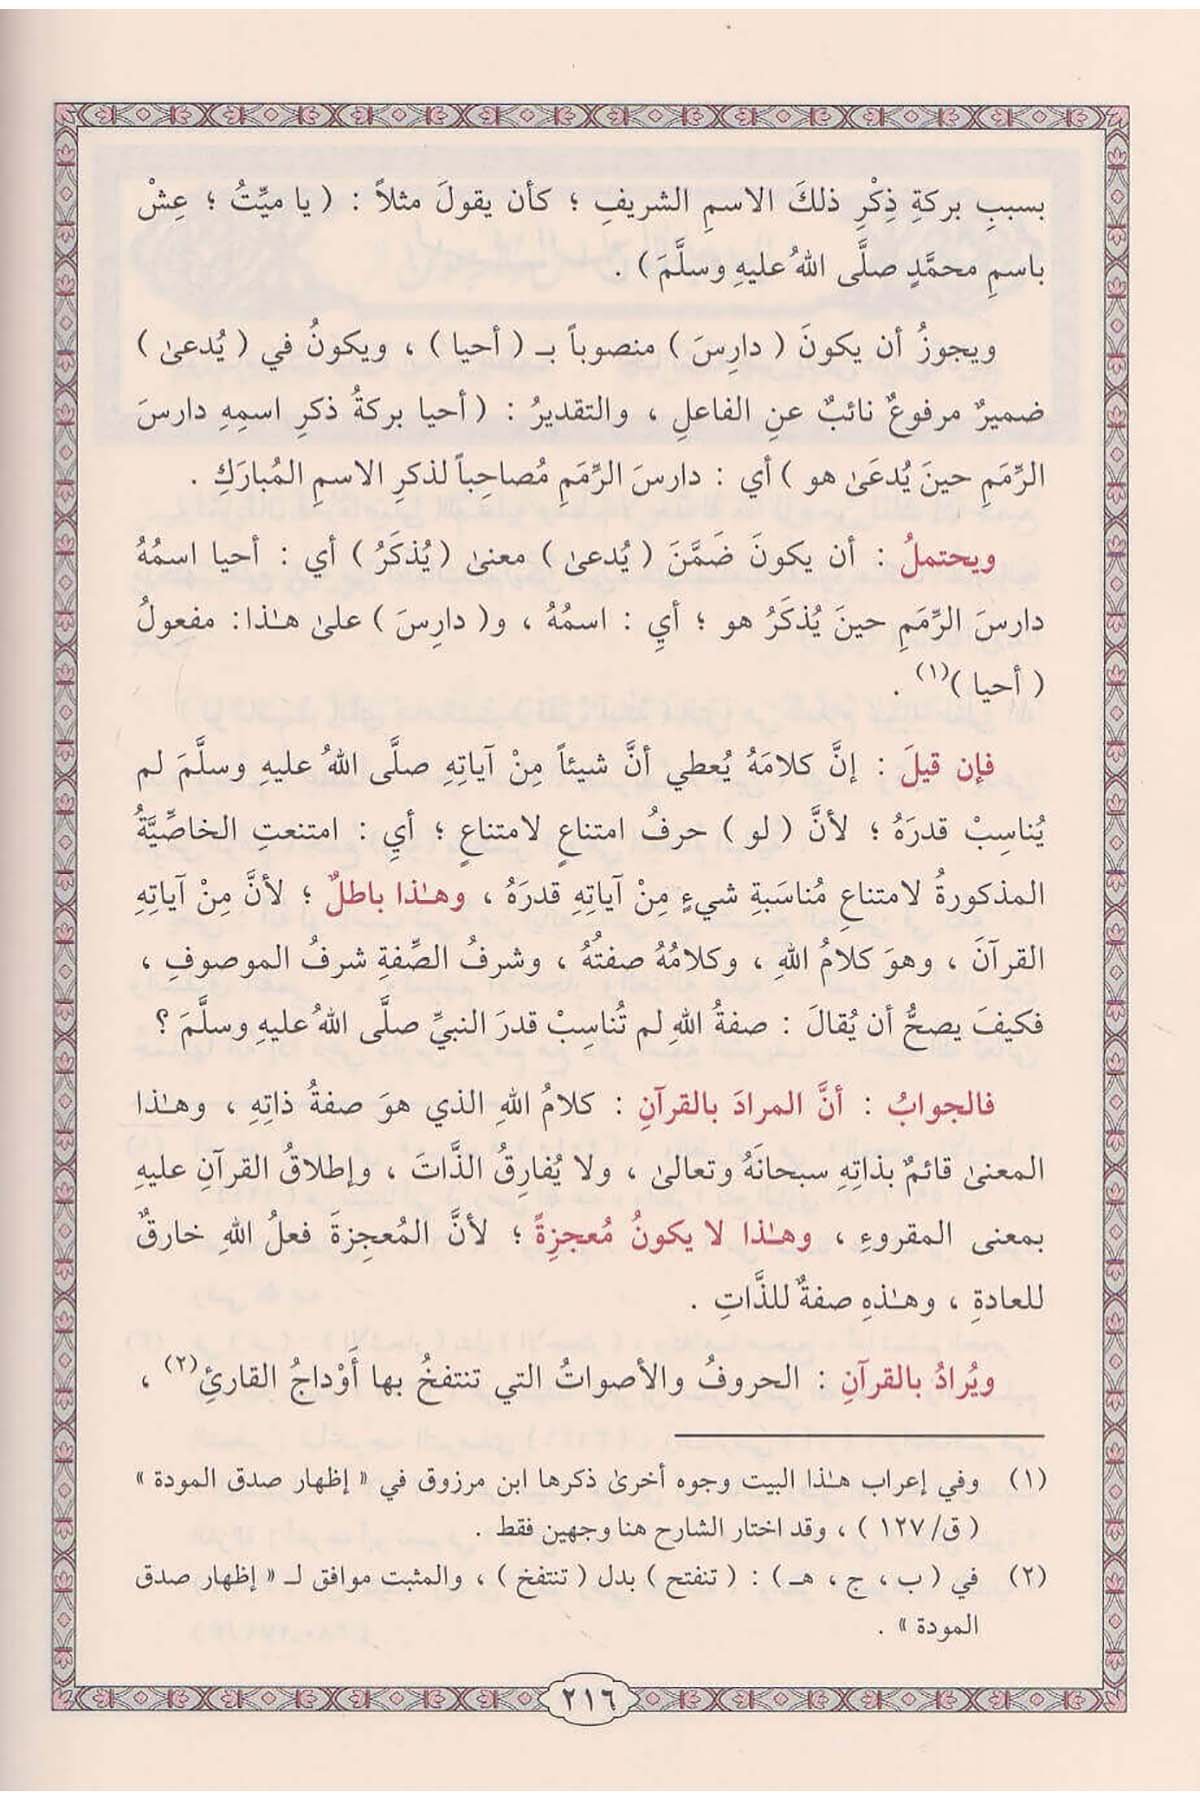 بسببِ بركةِ ذِكْرِ ذلكَ الاسمِ الشريفِ ؛ كأن يقولَ مثلاً : ( يا ميِّتُ ؛ عِشْ
باسمِ محمَّدٍ صلَّى اللهُ عليهِ وسلَّمَ ) .
ويجوزُ أن يكونَ ( دارِسَ ) منصوباً بـ ( أحيا ) ، ويكونُ في ( يُدعىٰ )
ضميرٌ مرفوعٌ نائبٌ عنِ الفاعلِ ، والتقديرُ : ( أحيا بركةُ ذكرِ اسمِهِ دارسَ
الرِّمَمِ حينَ يُدعَىٰ هو ) أي : دارسَ الرِّمَمِ مُصاحِباً لذكرِ الاسمِ المُبارَكِ .
ويحتملُ : أن يكونَ ضَمَّنَ ( يُدعىٰ ) معنىٰ ( يُذكَرُ ) أي : أحيا اسمُهُ
دارسَ الرِّمَمِ حينَ يُذكَرُ هو ؛ أيِ : اسمُهُ ، و( دارِسَ ) علىٰ هـٰذا : مفعولُ
( أحيا )(١) .
فإن قيلَ : إنَّ كلامَهُ يُعطي أنَّ شيئاً مِنْ آياتِهِ صلَّى اللهُ عليهِ وسلَّمَ لم
يُناسِبْ قدرَهُ ؛ لأنَّ ( لو ) حرفُ امتناعٍ لامتناعٍ ؛ أيِ : امتنعتِ الخاصِّيَّةُ
المذكورةُ لامتناعِ مُناسَبةِ شيءٍ مِنْ آياتِهِ قدرَهُ ، وهـٰذا باطلٌ ؛ لأنَّ مِنْ آياتِهِ
القرآنَ ، وهوَ كلامُ اللهِ ، وكلامُهُ صفتُهُ ، وشرفُ الصِّفةِ شرفُ الموصوفِ ،
فكيفَ يصحُّ أن يُقالَ : صفةُ اللهِ لم تُناسِبْ قدرَ النبيِّ صلَّى اللهُ عليهِ وسلَّمَ ؟
فالجوابُ : أنَّ المرادَ بالقرآنِ : كلامُ اللهِ الذي هوَ صفةُ ذاتِهِ ، وهـٰذا
المعنىٰ قائمٌ بذاتِهِ سبحانَهُ وتعالىٰ ، ولا يُفارِقُ الذَّاتَ ، وإطلاقُ القرآنِ عليهِ
بمعنى المقروءِ ، وهـٰذا لا يكونُ مُعجزةً ؛ لأنَّ المُعجزةَ فعلُ اللهِ خارقٌ
للعادةِ ، وهـٰذهِ صفةٌ للذَّاتِ .
ويُرادُ بالقرآنِ : الحروفُ والأصواتُ التي تنتفخُ بها أَوْداجُ القارئِ(٢) ،
(١) وفي إعراب هـٰذا البيت وجوه أخرىٰ ذكرها ابن مرزوق في « إظهار صدق المودة »
( ق/١٢٧ ) ، وقد اختار الشارح هنا وجهين فقط .
(٢) في ( ب ، ج ، هـ ) : ( تنفتح ) بدل ( تنتفخ ) ، والمثبت موافق لـ « إظهار صدق
المودة » .
٢١٦